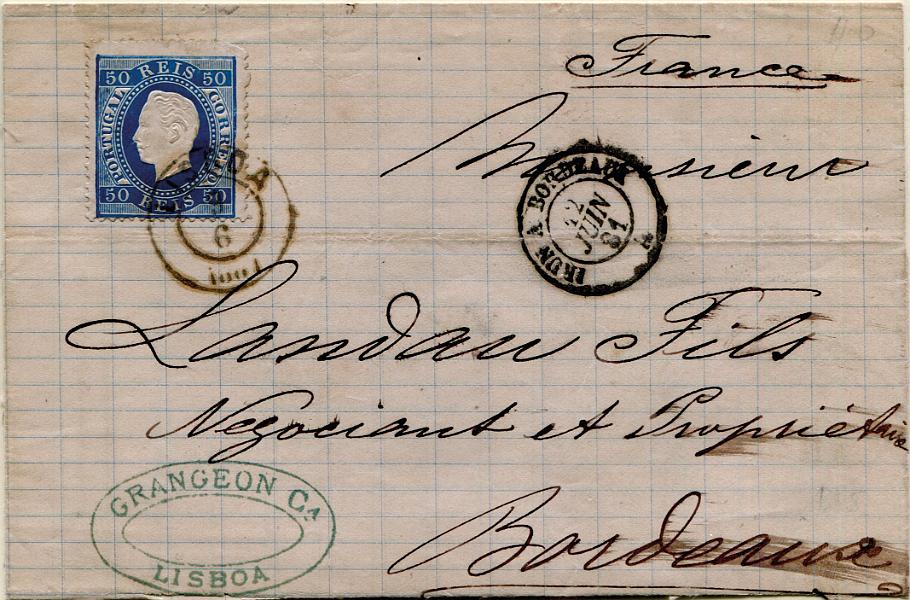 France
50 REIS 50
PORTUGAL
CORREIO
50 REIS 50
Monsieur
LISBOA
6
IRUN A BORDEAUX
12
JUIN
81
Landau Fils
Negociant et Propriétaire
GRANGEON Ca
LISBOA
Bordeaux